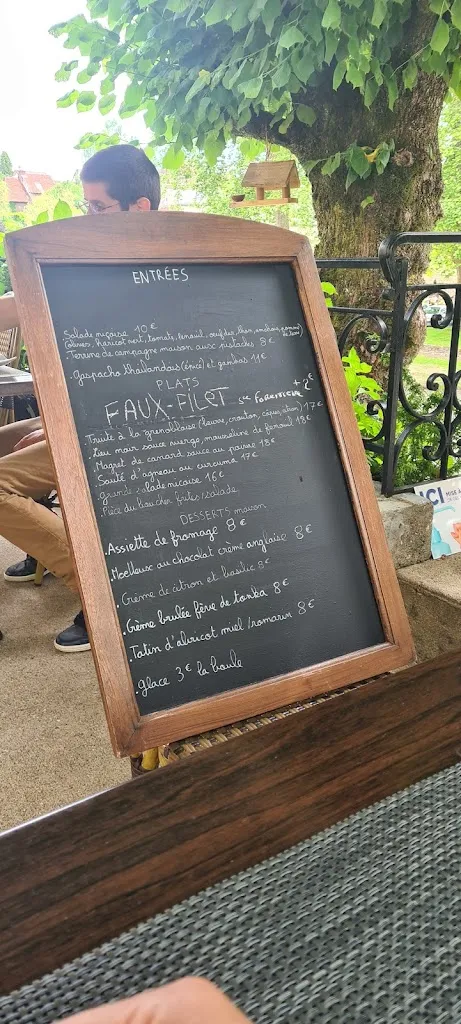 ENTRÉES
Salade niçoise 10 €
(olives, haricot vert, tomate, fenouil, oeuf dur, thon, anchois, pomme de terre)
Terrine de campagne maison aux pistaches 8 €
.Gaspacho thaïlandais (épicé) et gambas 11 €
PLATS
FAUX-FILET + 2€
.Truite à la grenobloise (beurre, crouton, câpre, citron) 17 €
.Lieu noir sauce vierge, mousseline de fenouil 18 €
.Magret de canard sauce au poivre 18 €
.Sauté d'agneau au curcuma 17 €
.Grande salade niçoise 16 €
.Pièce du boucher, frites, salade
DESSERTS maison
.Assiette de fromage 8 €
.Moelleux au chocolat crème anglaise 8 €
.Crème de citron et basilic 8 €
.Crème brulée fève de tonka 8 €
.Tatin d'abricot miel/romarin 8 €
.glace 3 € la boule
CI